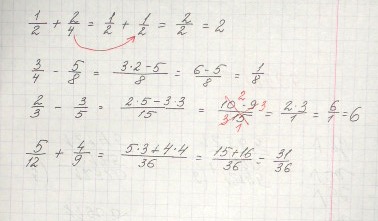 1/2 + 2/4 = 1/2 + 1/2 = 2/2 = 2
3/4 - 5/8 = (3·2-5)/8 = (6-5)/8 = 1/8
2/3 - 3/5 = (2·5-3·3)/15 = (10 2·9 3)/(3 15 1) = (2·3)/1 = 6/1 = 6
5/12 + 4/9 = (5·3+4·4)/36 = (15+16)/36 = 31/36